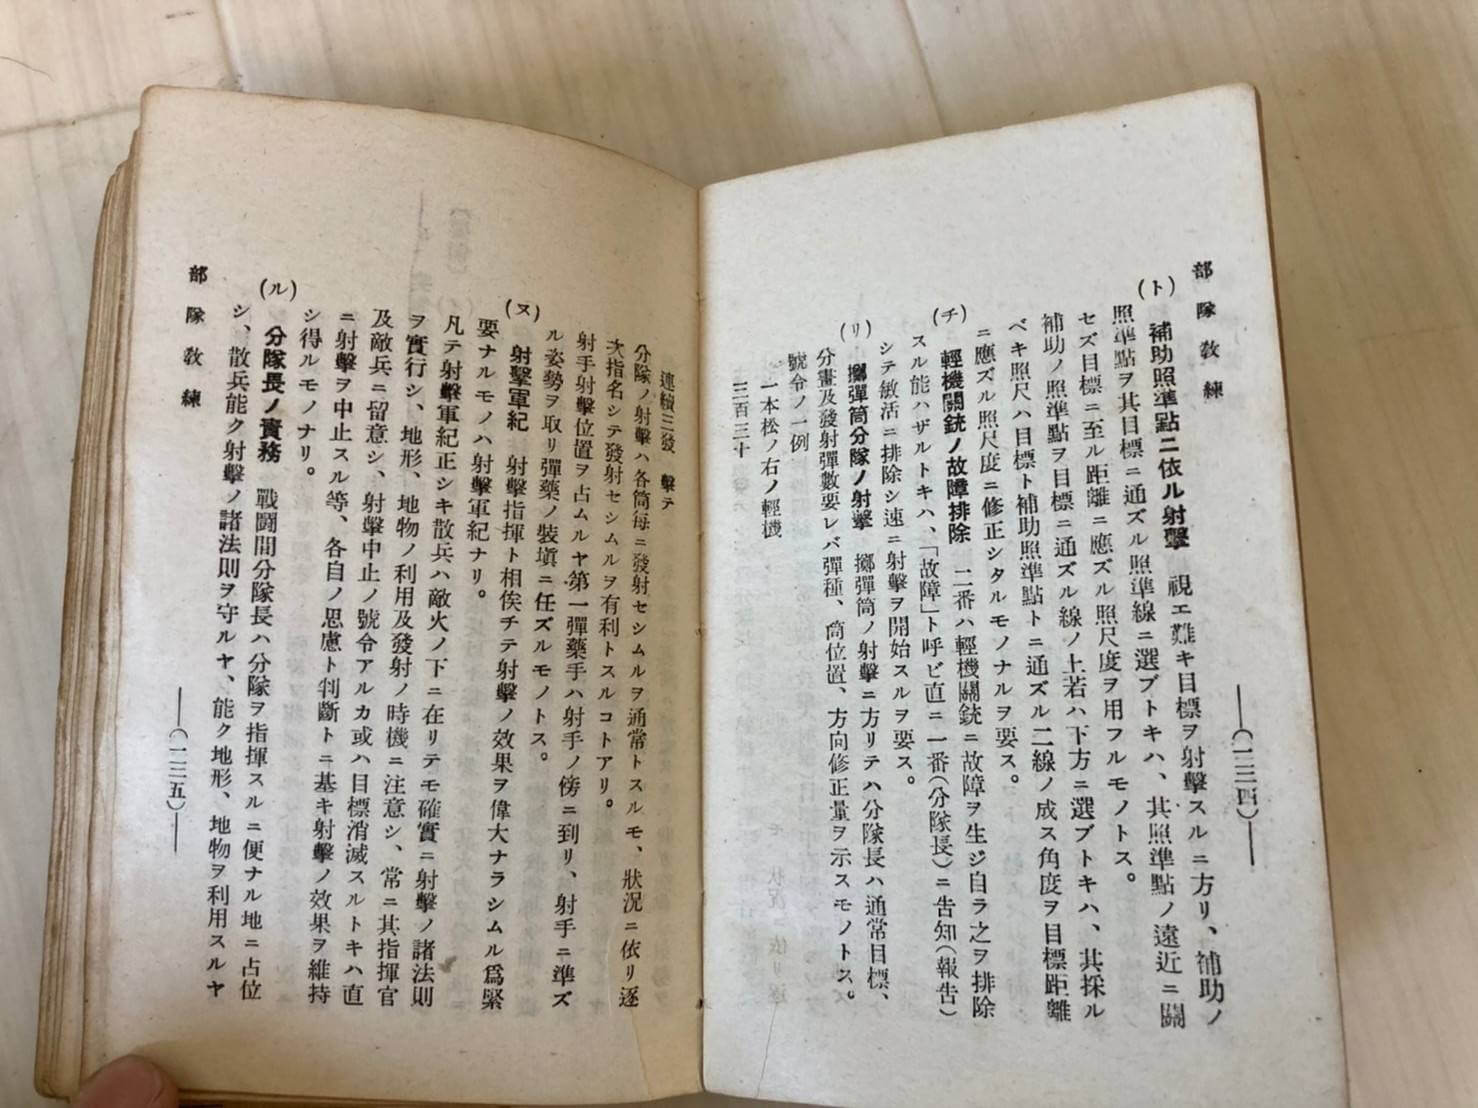 部隊教練
―(二三四)―
(ト) 補助照準點ニ依ル射擊 視エ難キ目標ヲ射擊スルニ方リ、補助ノ
照準點ヲ其目標ニ通ズル照準線ニ選ブトキハ、其照準點ノ遠近ニ關
セズ目標ニ至ル距離ニ應ズル照尺度ヲ用フルモノトス。
補助ノ照準點ヲ目標ニ通ズル線ノ上若ハ下方ニ選ブトキハ、其採ル
ベキ照尺ハ目標ト補助照準點トニ通ズル二線ノ成ス角度ヲ目標距離
ニ應ズル照尺度ニ修正シタルモノナルヲ要ス。
(チ) 輕機關銃ノ故障排除 二番ハ輕機關銃ニ故障ヲ生ジ自ラ之ヲ排除
スル能ハザルトキハ、「故障」ト呼ビ直ニ一番(分隊長)ニ告知(報告)
シテ敏活ニ排除シ速ニ射擊ヲ開始スルヲ要ス。
(リ) 擲彈筒分隊ノ射擊 擲彈筒ノ射擊ニ方リテハ分隊長ハ通常目標、
分畫及發射彈數要レバ彈種、筒位置、方向修正量ヲ示スモノトス。
號令ノ一例
一本松ノ右ノ輕機
三百三十
連續三發 擊テ
分隊ノ射擊ハ各筒每ニ發射セシムルヲ通常トスルモ、狀況ニ依リ逐
次指名シテ發射セシムルヲ有利トスルコトアリ。
射手射擊位置ヲ占ムルヤ第一彈藥手ハ射手ノ傍ニ到リ、射手ニ準ズ
ル姿勢ヲ取リ彈藥ノ裝塡ニ任ズルモノトス。
(ヌ) 射擊軍紀 射擊指揮ト相俟チテ射擊ノ效果ヲ偉大ナラシムル爲緊
要ナルモノハ射擊軍紀ナリ。
凡テ射擊軍紀正シキ散兵ハ敵火ノ下ニ在リテモ確實ニ射擊ノ諸法則
ヲ實行シ、地形、地物ノ利用及發射ノ時機ニ注意シ、常ニ其指揮官
及敵兵ニ留意シ、射擊中止ノ號令アルカ或ハ目標消滅スルトキハ直
ニ射擊ヲ中止スル等、各自ノ思慮ト判斷トニ基キ射擊ノ效果ヲ維持
シ得ルモノナリ。
(ル) 分隊長ノ責務 戰鬪間分隊長ハ分隊ヲ指揮スルニ便ナル地ニ占位
シ、散兵能ク射擊ノ諸法則ヲ守ルヤ、能ク地形、地物ヲ利用スルヤ
部隊教練
―(二三五)―